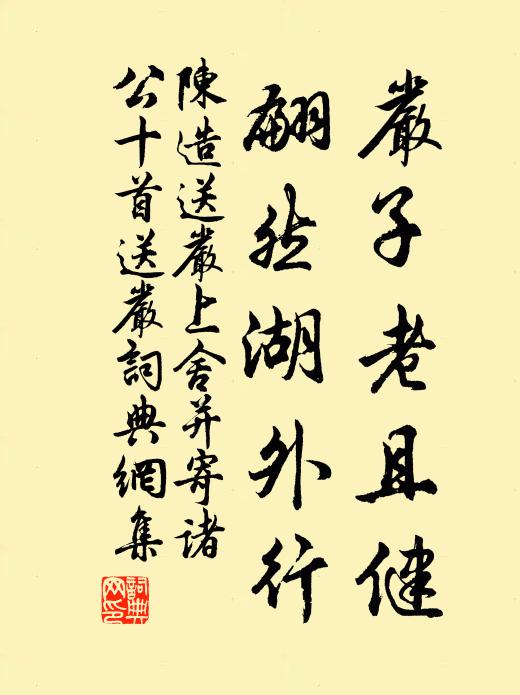 嚴子老且健
翩然湖外行
陳造送嚴上舍并寄諸
公十首送嚴詞典網集
詞典
网印